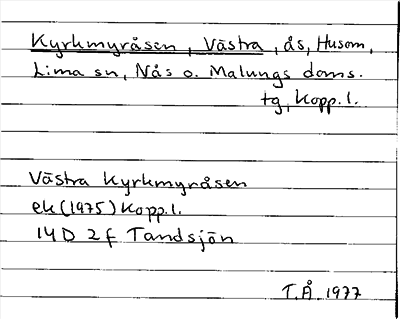 Kyrkmyråsen, Västra, ås, Husom,
Lima sn, Nås o. Malungs doms.
tg, Kopp. l.
Västra Kyrkmyråsen
ek (1975) Kopp. l.
14 D 2 f Tandsjön
T. Å. 1977